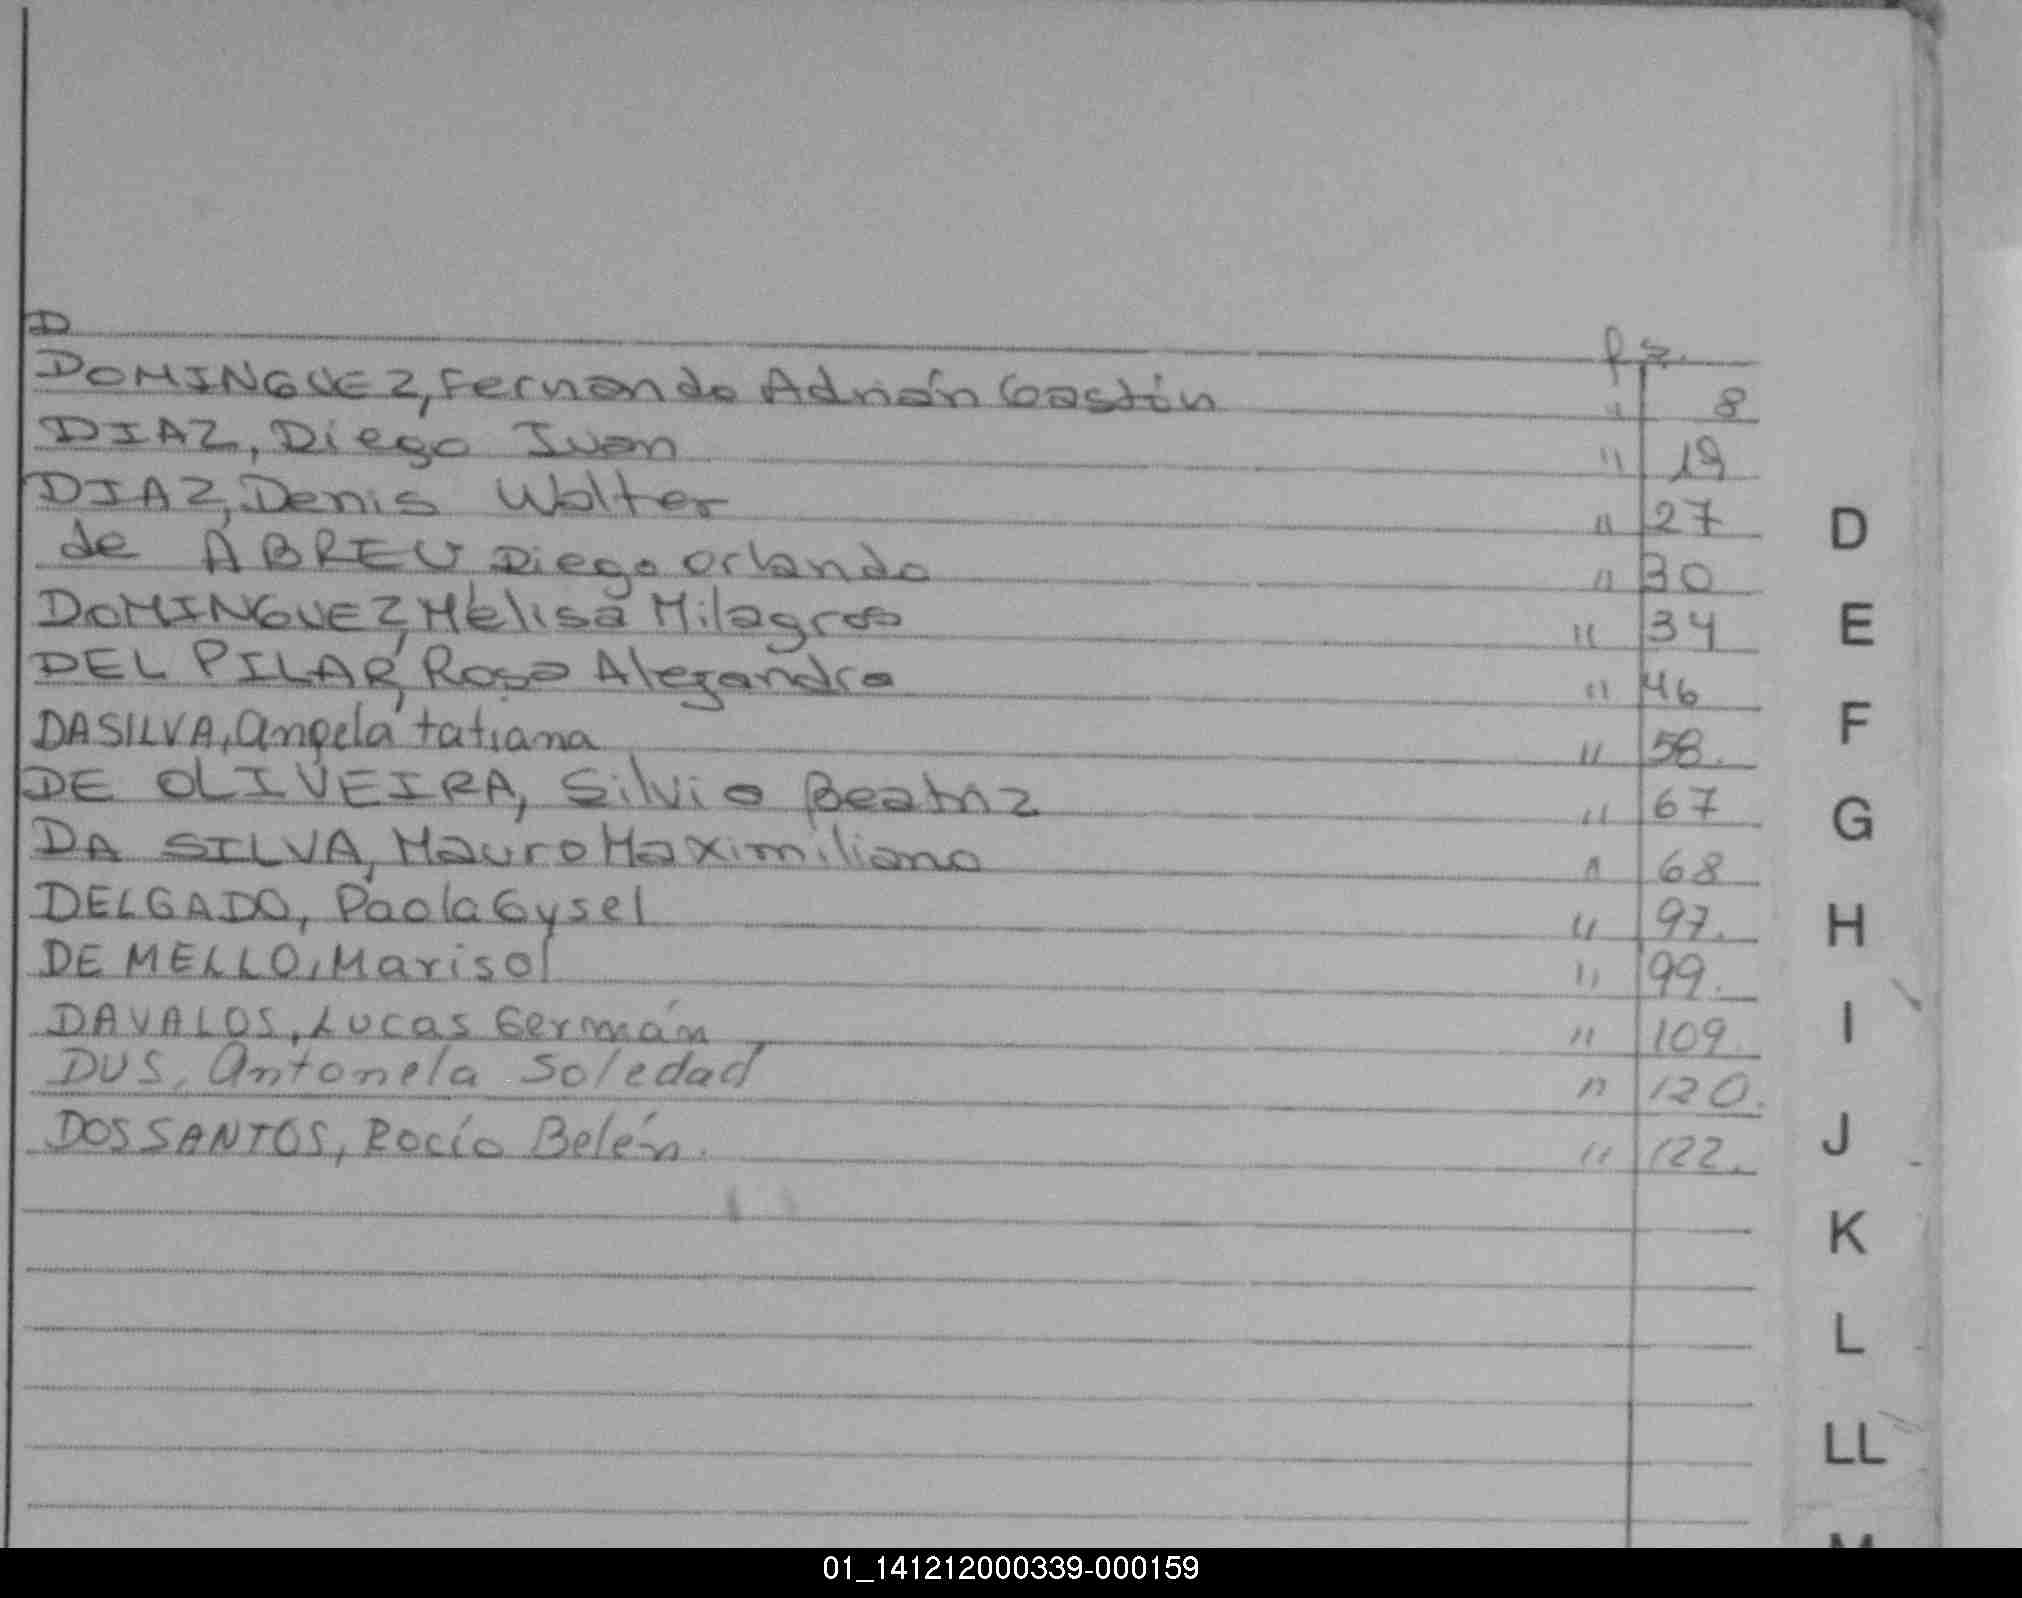 D fs.
DOMINGUEZ, Fernando Adrián Gastón " 8
DIAZ, Diego Ivan " 19
DIAZ, Denis Walter " 27
de ABREU Diego Orlando " 30
DOMINGUEZ, Melisa Milagros " 34
DEL PILAR, Rosa Alejandra " 46
DASILVA, Angela tatiana " 58.
DE OLIVEIRA, Silvia Beatriz " 67
DA SILVA, Mauro Maximiliano " 68
DELGADO, Paola Gysel " 97.
DE MELLO, Marisol " 99.
DAVALOS, Lucas Germán " 109.
DUS, Antonela Soledad " 120.
DOSSANTOS, Rocío Belén. " 122.
D
E
F
G
H
I
J
K
L
LL
M
01_141212000339-000159